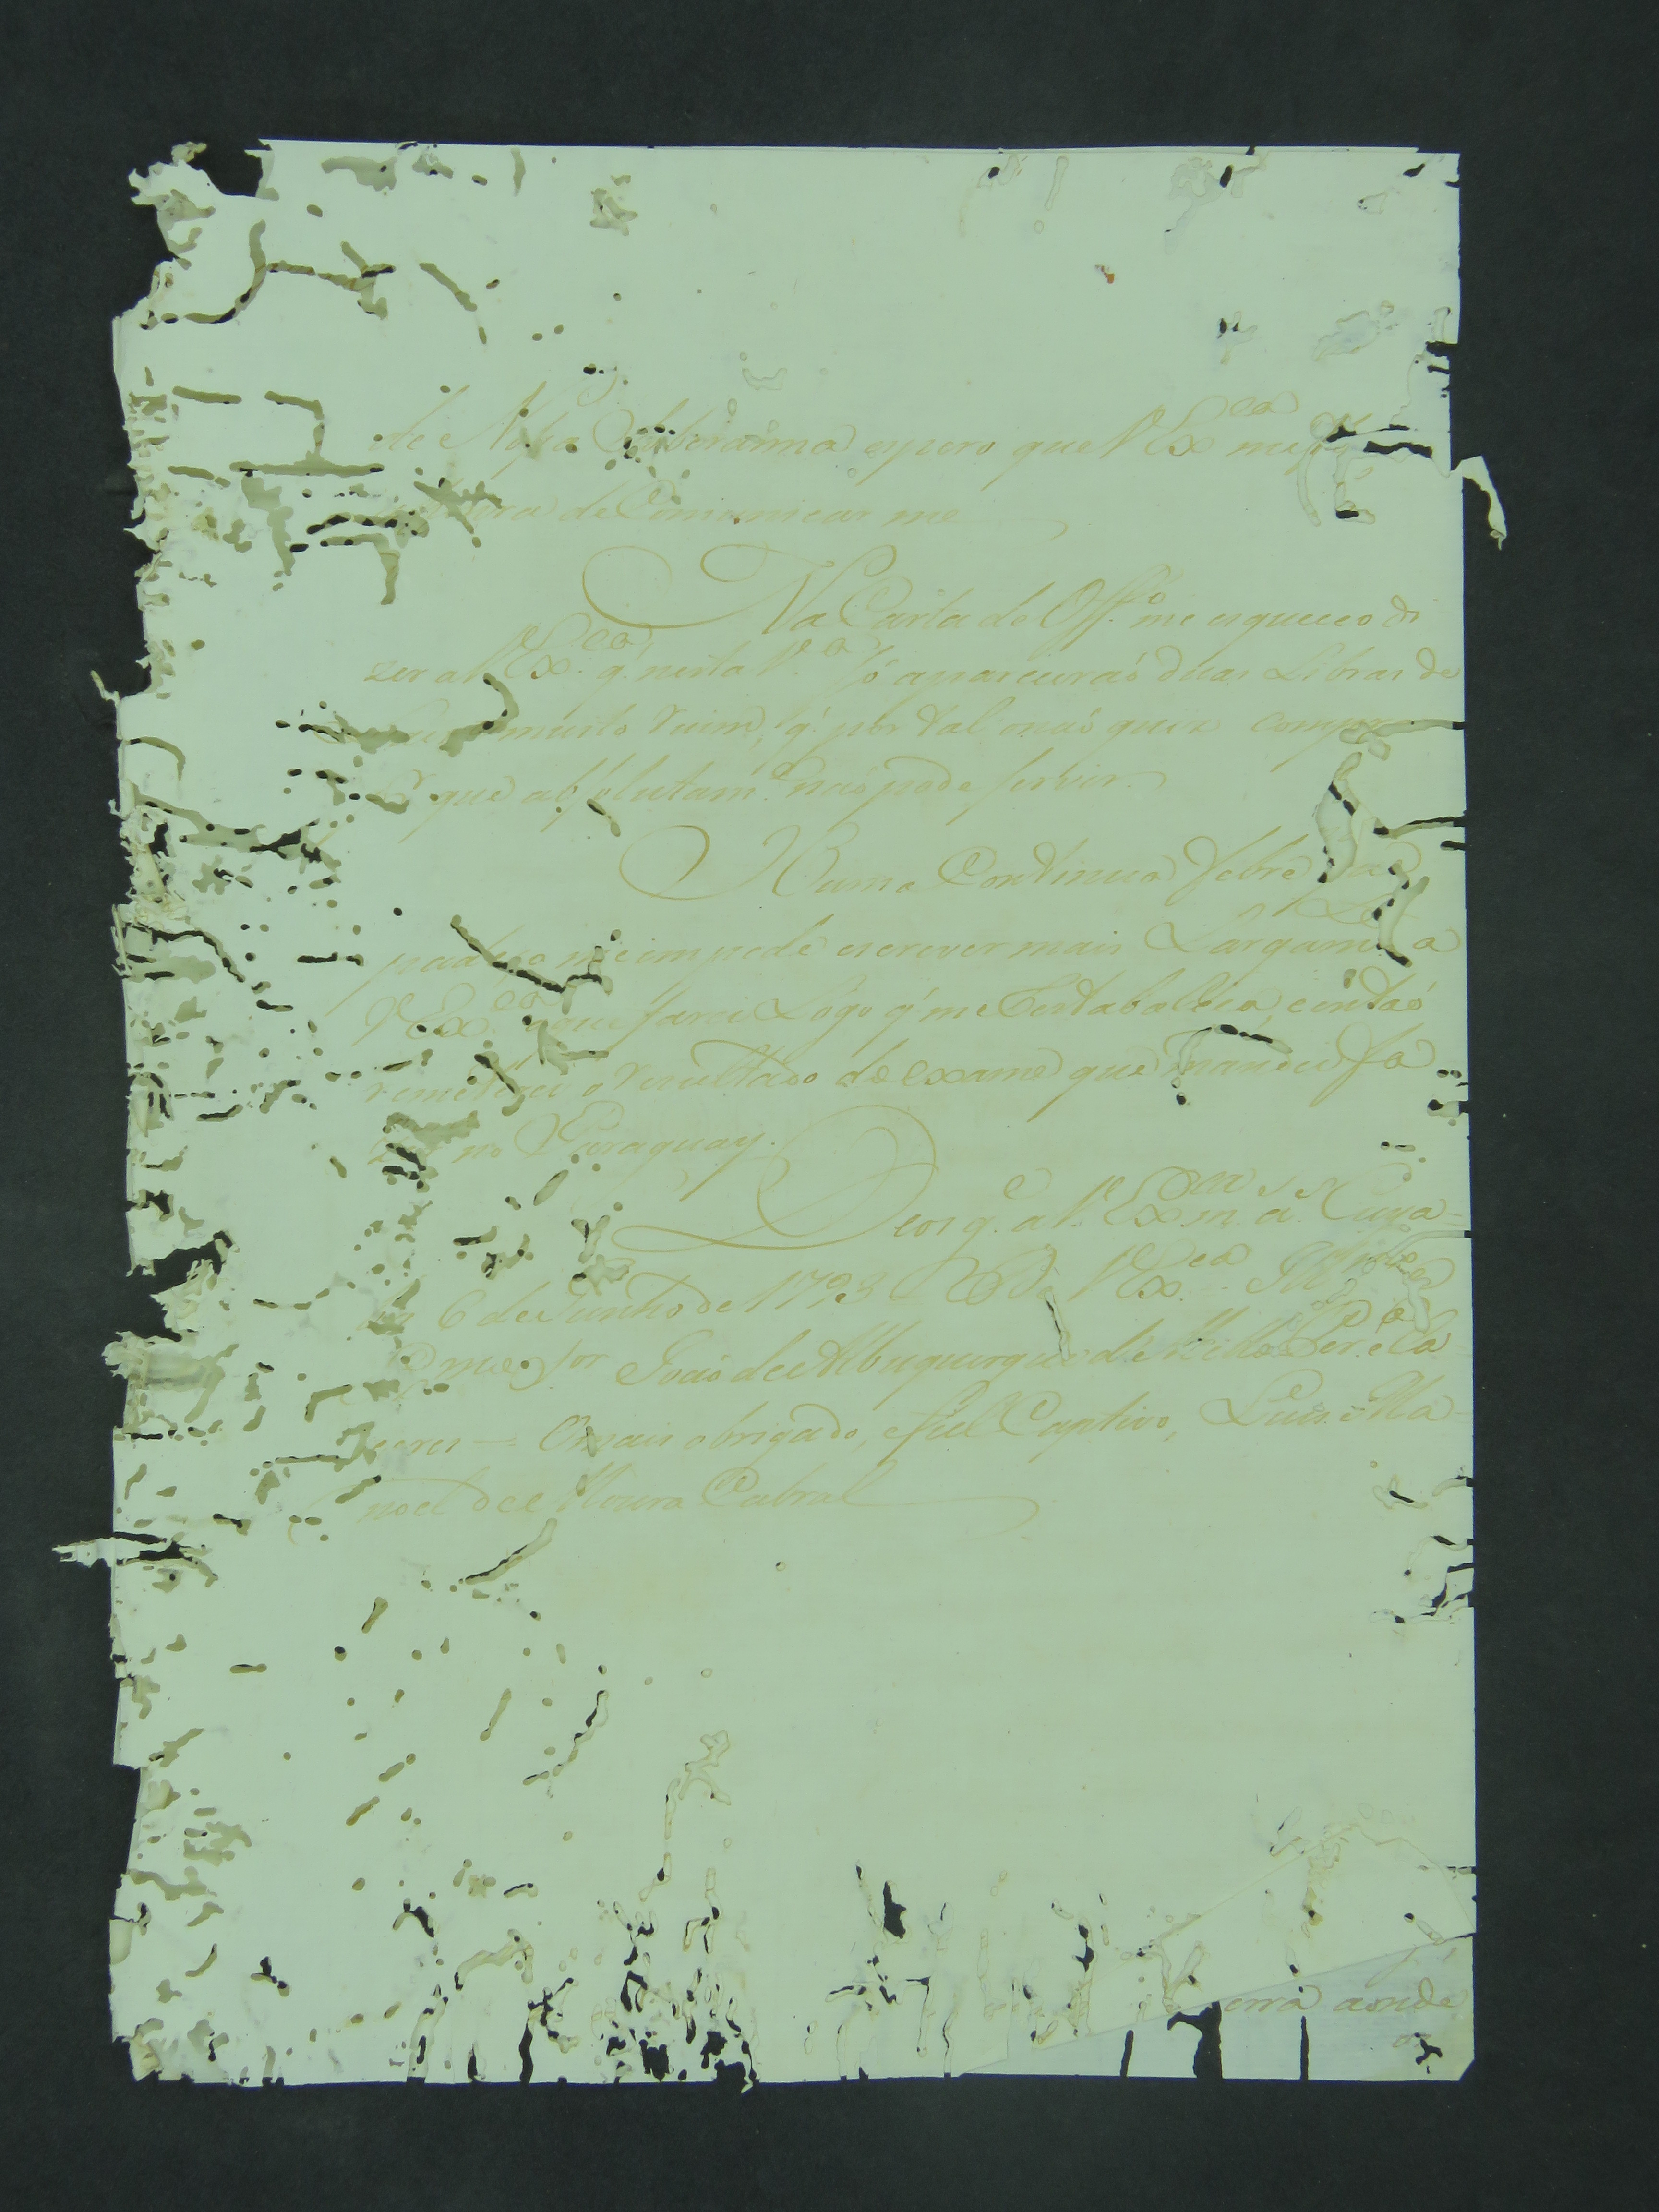 de Nossa Soberanna espero que VEx.ca me
de Comunicar me
Na Carta de Off.o me esqueceo di
zer a VEx.ca q̃ nesta V.a só apareceraõ duas Libras de
muito ruim, q̃ por tal naõ quiz comprar
que absolutam.e naõ pode servir.
Huma Continua febre
me impede escrever mais Largam.te a
VEx.ca que farei Lógo q̃ me Restabaleça, entaõ
remeterei o rezultado do exame que mandei fa
zer no Paraguay.
Deos g.e a VEx.ca m. a. Cuya=
bá 6 de Junho de 1793 = De VEx.ca Ill.mo
Sor Joaõ de Albuquerque de Mello Per.a e Ca
ceres = O mais obrigado, e fiel Captivo, Luis Ma=
noel de Moura Cabral
erra aonde